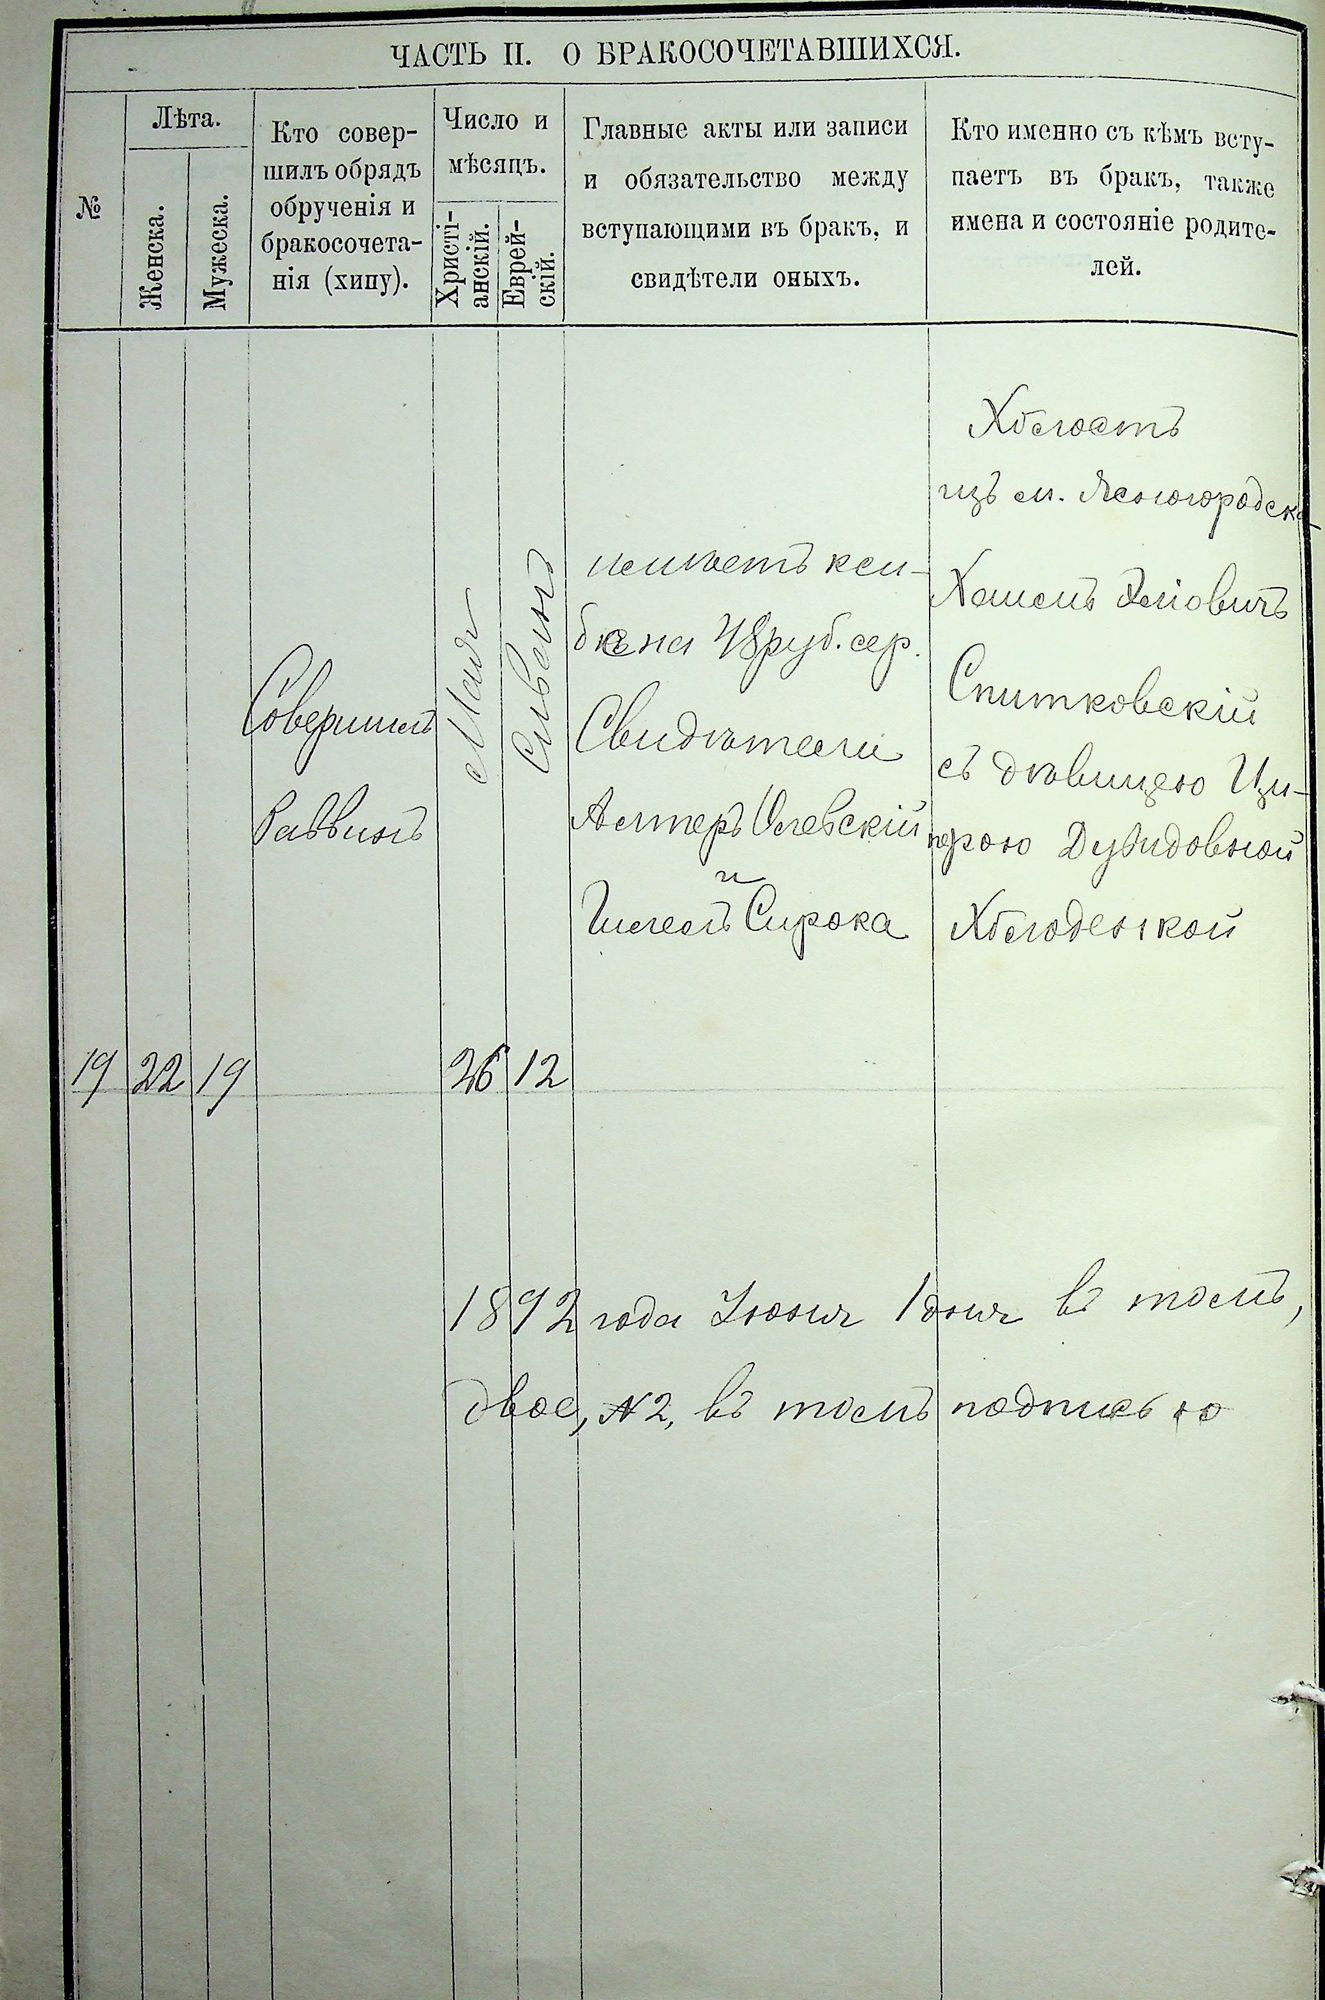 ЧАСТЬ II. О БРАКОСОЧЕТАВШИХСЯ.
№
Лѣта.
Женска.
Мужеска.
Кто совер-
шилъ обрядъ
обрученія и
бракосочета-
нія (хипу).
Число и
мѣсяцъ.
Христі-
анскій.
Еврей-
скій.
Главные акты или записи
и обязательство между
вступающими въ бракъ, и
свидѣтели оныхъ.
Кто именно съ кѣмъ всту-
паетъ въ бракъ, также
имена и состояніе родите-
лей.
19
22
19
Совершилъ
Раввинъ
Мая
26
Сиванъ
12
на 48 руб. сер.
Свидѣтели
Алтеръ Олевскій
и
Сирока
Холостъ
изъ м. Ясногородска
Спитковскій
съ дѣвицею Ци-
прою Дувидовной
Холоденкой
1892 года Іюня 1 дня въ томъ,
двое, №2, въ томъ подписью